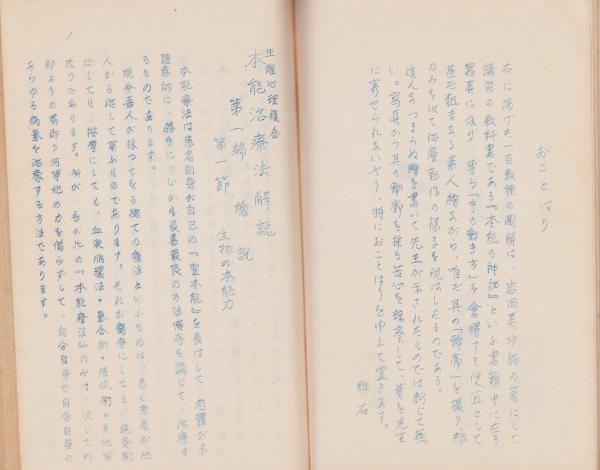 おことはり
右に掲げた一百数種の図解は、岩田美妙師の著にして
講習の教科書である『本能の神秘』といふ書籍中に在る
写真に依り、専ら「手の動き方」を会得する便宜として
甚だ粗末なる素人絵ながら、唯だ其の『輪廓』を撮り、線
のみを以て治療動作の様子を現はしたものである。
這んなつまらぬ絵を書いて先生が示されたものでは断じて無
い。写真から其の輪廓を採る苦心を諒察して、責を先生
に寄せられないやう、特におことはりを申上て置きます。
雅石
生理心理複合
本能治療法解説
第一編 総説
第一節 生物の本能力
本能療法は患者自身が自己の『聖本能』を喪はして、肉体が不
随意的に、勝手に、しかも最善最良の方法順序を講じて、治療す
るものであります。
現今吾人が採つてをる總ての療法といふものは、悉く患者が他
人から治して貰ふものであります。それが醫療にしても、鍼灸術
にしても、按摩にしても、血液循環法・気合術・催眠術・其他皆
然りであります。所が、吾が此の『本能療法』のみは、決して外
部よりの薬餌や何等他の力を借らずして、自分自身で自分自身の
あらゆる病気を治療する方法であります。